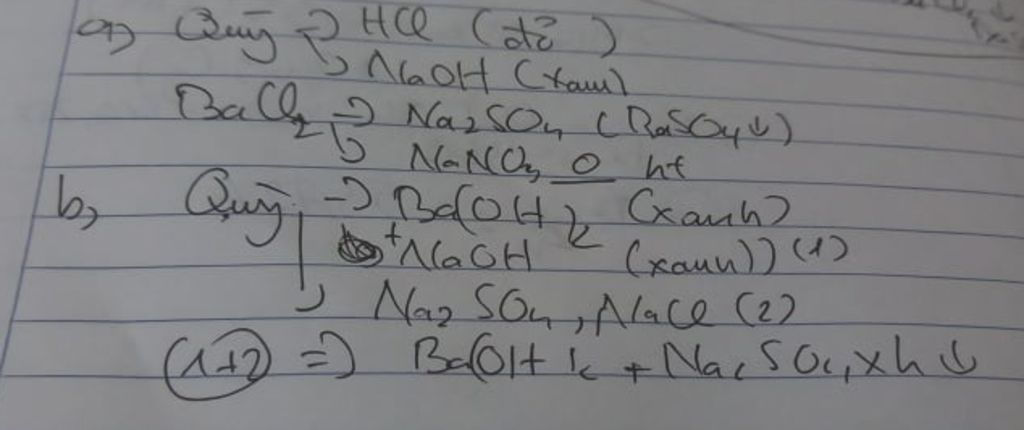 a) Quỳ → HCl (đỏ)
↳ NaOH (xanh)
BaCl2 → Na2SO4 (BaSO4↓)
↳ NaNO3 0 ht
b, Quỳ → Ba(OH)2 (xanh)
+ NaOH (xanh)) (1)
↳ Na2SO4, NaCl (2)
(1+2) => Ba(OH)2 + Na2SO4, xh ↓